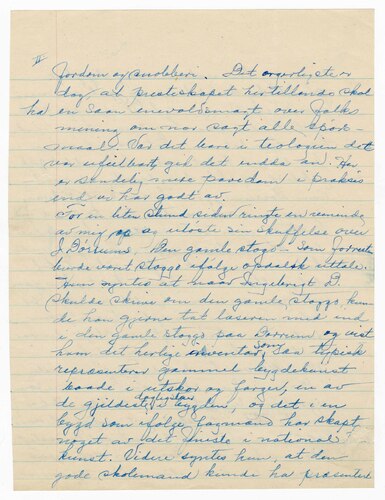 II
fordom og snobberi. Det ergerligste er
dog, at presteskapet her tillands skal
ha en saan enevoldsmagt over folks
mening om nær sagt alle spörs-
maal. Var det bare i teologien det
var ufeilbart, gik det endda an. Her
er sandelig mere pavedom i praksis
end vi har godt av.
For en liten stund siden ringte en veninde
av mig og utöste sin skuffelse over
J. Borrums, "Den gamle stogo". Som forresten
burde vært stoggo ifölge opdalsk uttale.
Hun syntes at naar Ingebrigt D.
skulde skrive om den gamle stoggo kun
de han gjerne tat læseren med ind
i den gamle stoggo paa Borrum og vist
ham det herlige inventar, som saa typisk
repræsenterer gammel bygdekunst
baade i utskor og farger, en av
de gjildeste i bygden, og det i en
bygd som ifölge fagmænd har skapt
noget av det ypperste i national
kunst. Videre syntes hun, at den
gode skolemand kunde ha præsentert